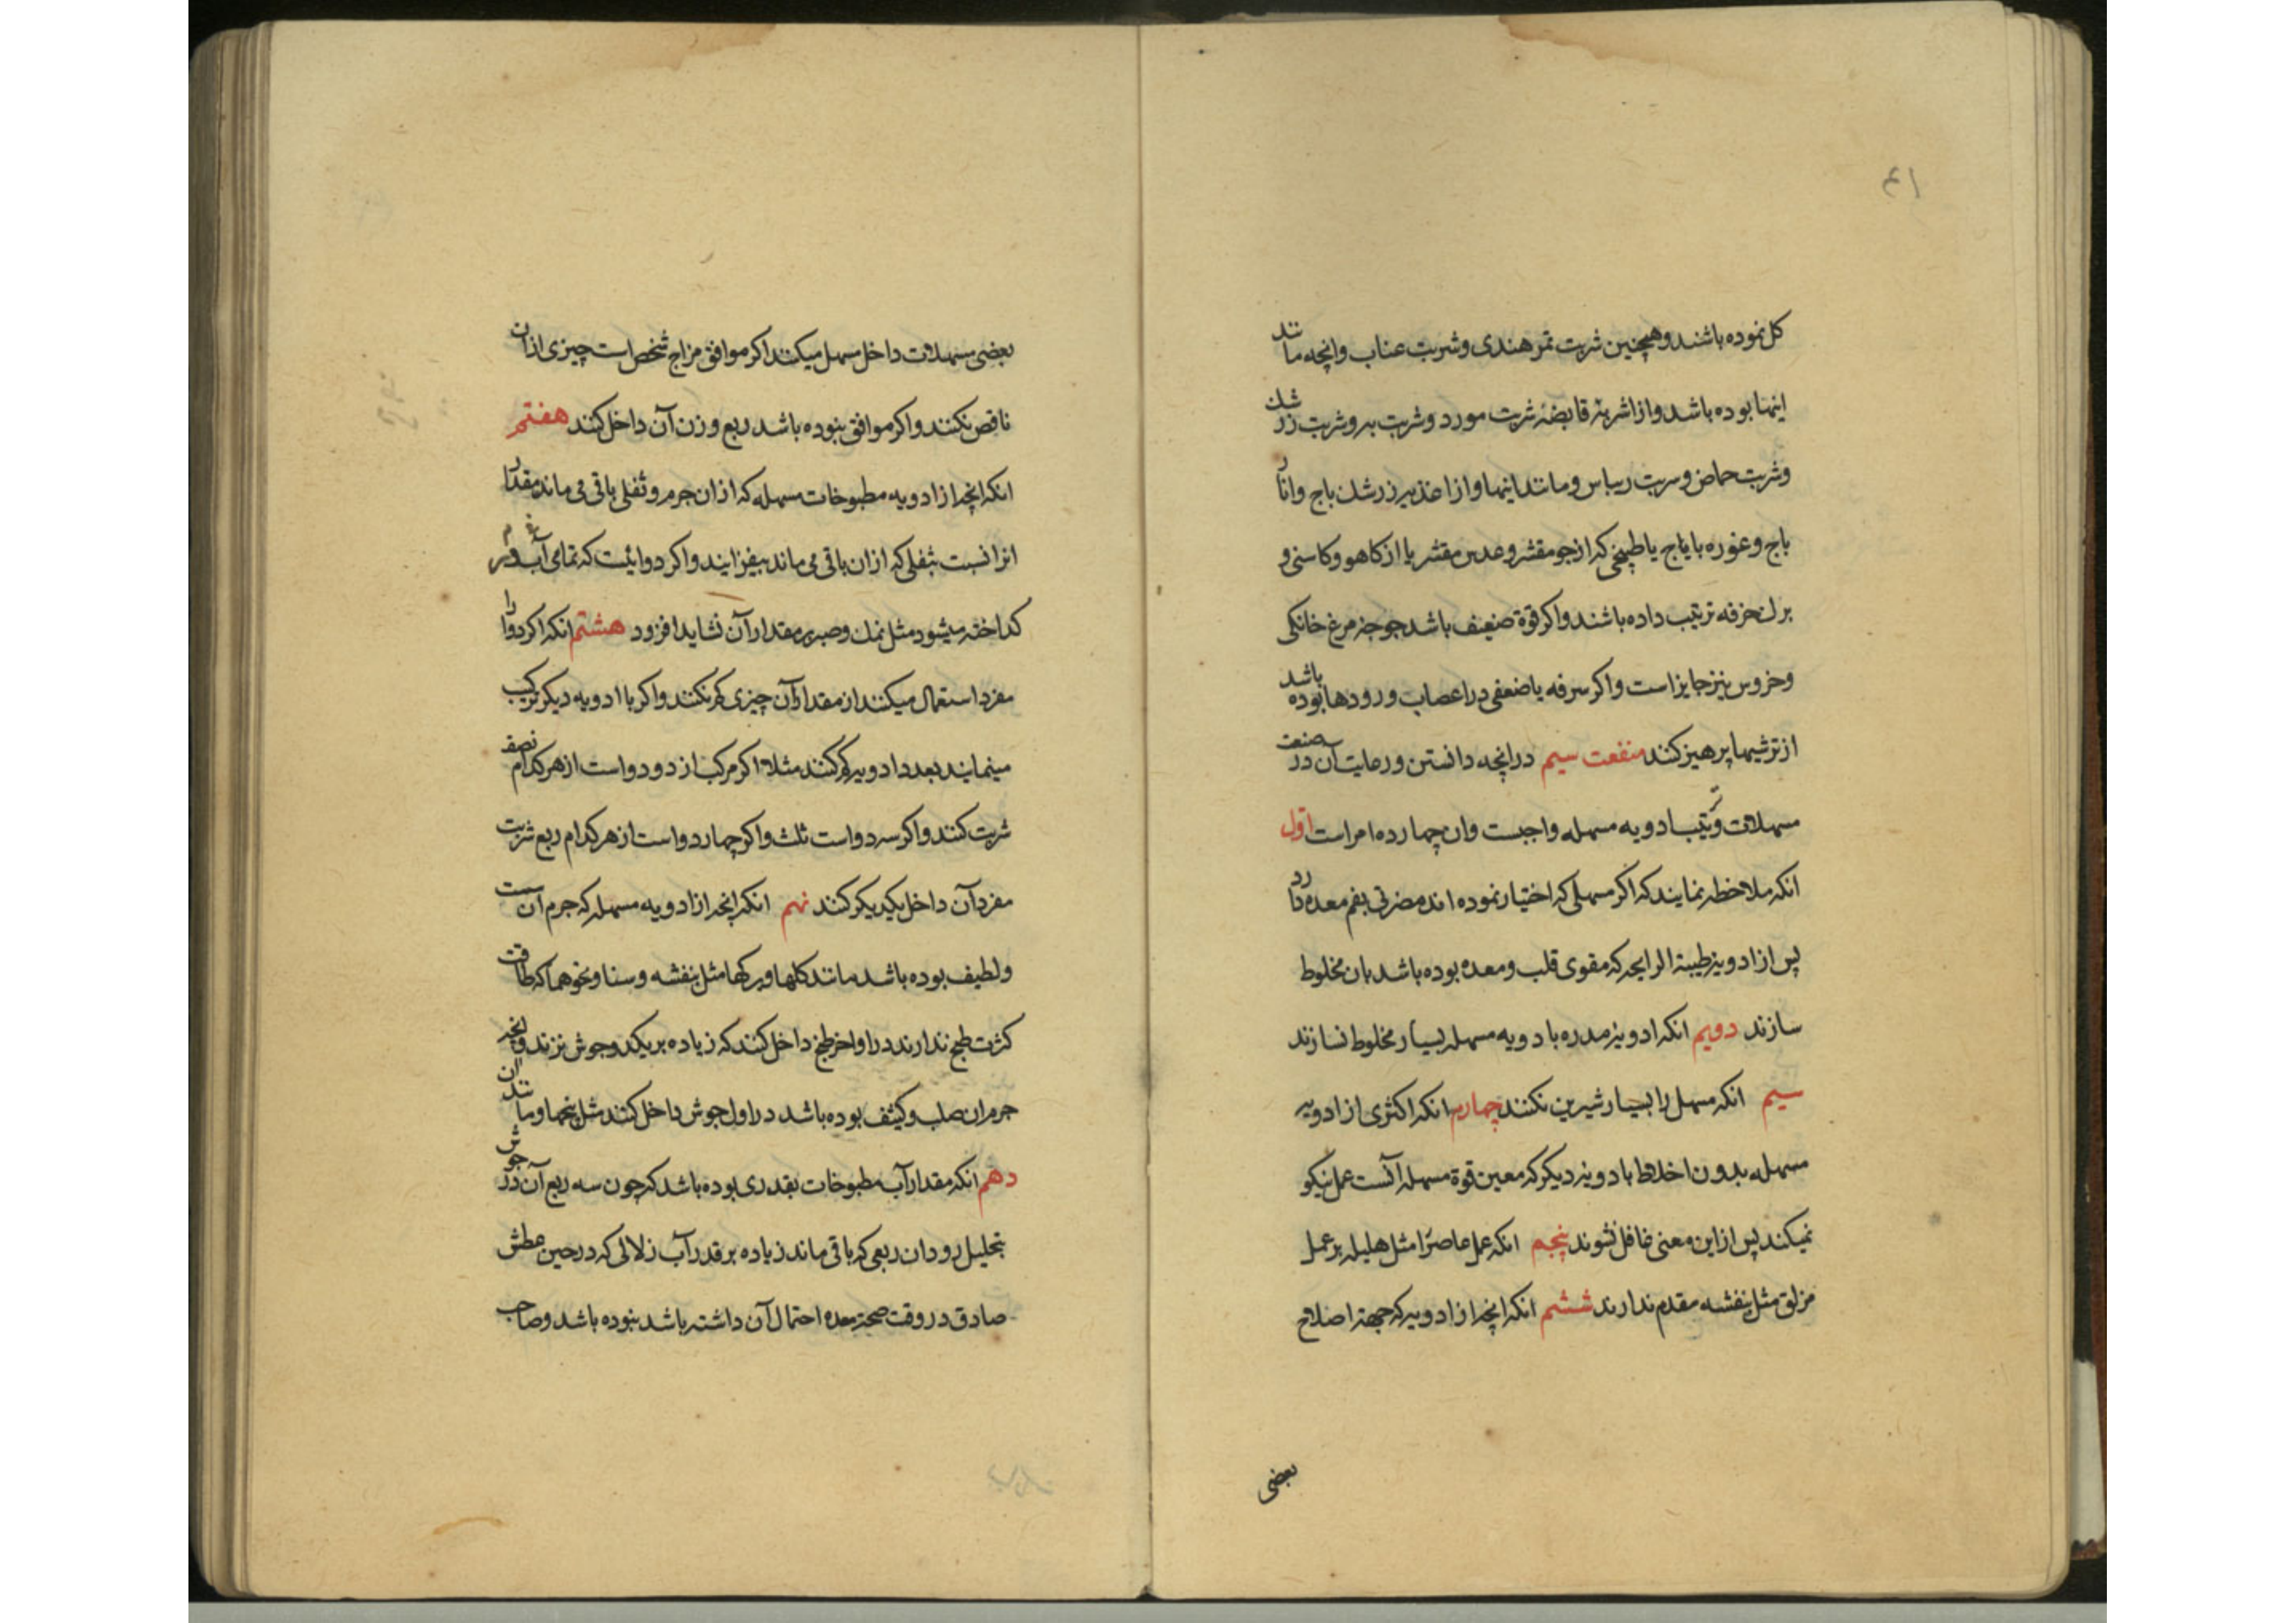 ۶۱
کل نموده باشند و همچنین شربت تمر هندی و شربت عناب و انچه مانند
اینها بوده باشد و از اشربهٔ قابضه شربت مورد و شربت به و شربت زرشک
و شربت حماض و سربت ریباس و مانند اینها و از اغذیه زرشک باج و انار
باج و غوره با یا باج یا طبیخی که از جو مقشر و عدس مقشر یا از کاهو و کاسنی و
برک خرفه ترتیب داده باشند و اکر قوة ضعیف باشد جوجه مرغ خانکی
و خروس نیز جایز است و اکر سرفه یا ضعفی در اعصاب و رودها بوده باشد
از ترشیها پرهیز کنند منفعت سیم در انچه دانستن و رعایت آن در صنعت
مسهلات و ترتیب ادویه مسهله واجبست وان چهارده امر است اوّل
انکه ملاحظه نمایند که اکر مسهلی که اختیار نموده اند مضرتی بفم معده دارد
پس از ادویهٔ طیبة الرایحه که مقوی قلب و معده بوده باشد بان مخلوط
سازند دویم انکه ادویهٔ مدره با دویه مسهله بسیار مخلوط نسازند
سیم انکه مسهل را بسیار شیرین نکنند چهارم انکه اکثری از ادویه
مسهله بدون اخلاط با دویهٔ دیکر که معین قوة مسهله آنست عمل نیکو
نمیکند پس از این معنی غافل نشوند پنجم انکه عمل عاصر را مثل هلیله بر عمل
مزلق مثل بنفشه مقدم ندارند ششم انکه انچه از ادویه که جهة اصلاح
بعضی
بعضی مسهلات داخل مسهل میکنند اکر موافق مزاج شخص است چیزی از ان
ناقص نکنند و اکر موافق نبوده باشد ربع وزن آن داخل کنند هفتم
انکه انچه از ادویه مطبوخات مسهله که از ان جرم و ثفلی باقی می ماند مقدار
انرا نسبت بثفلی که ازان باقی می ماند بیفزایند و اکر دوائیست که تمامی آب
کداخته میشود مثل نمک و صبر بر مقدار آن نشاید افزود هشتم انکه اکر دوا را
مفرد استعمال میکنند از مقدار آن چیزی کم نکنند و اکر با ادویه دیکر ترکیب
مینمایند بعدد ادویه کم کنند مثلا اکر مرکب از دو دواست از هر کدام نصف
شربت کنند و اکر سه دواست ثلث و اکر چهار دواست از هر کدام ربع شربت
مفرد آن داخل یکدیکر کنند نهم انکه انچه از ادویه مسهله که جرم آن سست
و لطیف بوده باشد مانند کلها و برکها مثل بنفشه و سنا و نحو هما که طاقت
کثرت طبخ ندارند در اواخر طبخ داخل کنند که زیاده بر یکدو جوش نزند و انچه
جرم ان صلب و کثیف بوده باشد در اول جوش داخل کنند مثل بیخها و مانند ان
دهم انکه مقدار آب مطبوخات بقدری بوده باشد که چون سه ربع آن در جوش
بتحلیل رود ان ربعی که باقی ماند زیاده بر قدر آب زلالی که در حین عطش
صادق در وقت صحة معده احتمال آن داشته باشد نبوده باشد و صاحب